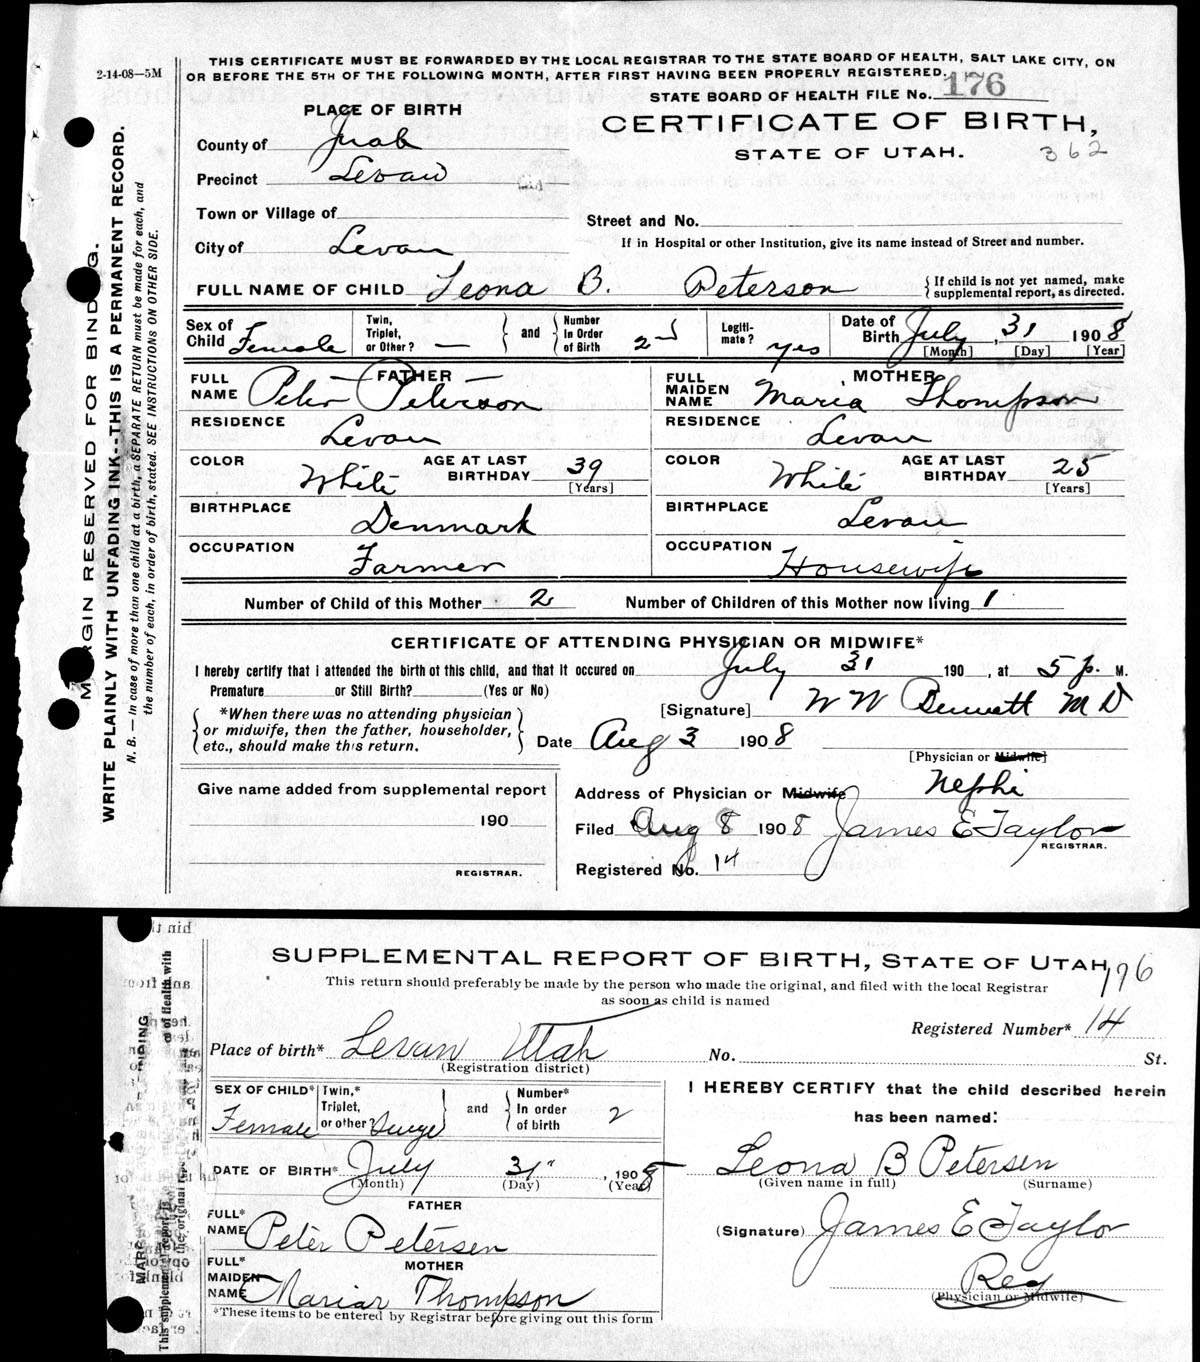 2-14-08—5M
THIS CERTIFICATE MUST BE FORWARDED BY THE LOCAL REGISTRAR TO THE STATE BOARD OF HEALTH, SALT LAKE CITY, ON
OR BEFORE THE 5TH OF THE FOLLOWING MONTH, AFTER FIRST HAVING BEEN PROPERLY REGISTERED.
STATE BOARD OF HEALTH FILE No. 176
PLACE OF BIRTH
CERTIFICATE OF BIRTH,
STATE OF UTAH. 362
County of Juab
Precinct Levan
Town or Village of
Street and No.
City of Levan
If in Hospital or other Institution, give its name instead of Street and number.
FULL NAME OF CHILD Leona B. Peterson { If child is not yet named, make supplemental report, as directed.
Sex of Child Female Twin, Triplet, or Other? — } and { Number In Order of Birth 2nd Legiti-mate? yes Date of Birth July, 31 1908
[Month] [Day] [Year]
FATHER
FULL NAME Peter Peterson
MOTHER
FULL MAIDEN NAME Maria Thompson
RESIDENCE Levan
RESIDENCE Levan
COLOR White AGE AT LAST BIRTHDAY 39 [Years]
COLOR White AGE AT LAST BIRTHDAY 25 [Years]
BIRTHPLACE Denmark
BIRTHPLACE Levan
OCCUPATION Farmer
OCCUPATION Housewife
Number of Child of this Mother 2 Number of Children of this Mother now living 1
CERTIFICATE OF ATTENDING PHYSICIAN OR MIDWIFE*
I hereby certify that i attended the birth of this child, and that it occured on July 31 190 , at 5 p. M.
Premature or Still Birth? (Yes or No)
[Signature] W W Bennett M D
{ *When there was no attending physician
or midwife, then the father, householder,
etc., should make this return. }
Date Aug 3 1908
[Physician or Midwife]
Give name added from supplemental report
190
REGISTRAR.
Address of Physician or Midwife Nephi
Filed Aug 8 1908 James E Taylor
REGISTRAR.
Registered No. 14
MARGIN RESERVED FOR BINDING.
WRITE PLAINLY WITH UNFADING INK--THIS IS A PERMANENT RECORD.
N. B. — In case of more than one child at a birth, a SEPARATE RETURN must be made for each, and
the number of each, in order of birth, stated. SEE INSTRUCTIONS ON OTHER SIDE.
SUPPLEMENTAL REPORT OF BIRTH, STATE OF UTAH 176
This return should preferably be made by the person who made the original, and filed with the local Registrar
as soon as child is named
Registered Number* 14
Place of birth* Levan Utah
(Registration district)
No. St.
SEX OF CHILD* Female Twin,* Triplet, or other? } and { Number* In order of birth 2
DATE OF BIRTH* July 31" , 1908
(Month) (Day) (Year)
FATHER
FULL* NAME Peter Petersen
MOTHER
FULL* MAIDEN NAME Mariar Thompson
*These items to be entered by Registrar before giving out this form
I HEREBY CERTIFY that the child described herein
has been named:
Leona B Petersen
(Given name in full) (Surname)
(Signature) James E Taylor
Reg
(Physician or Midwife)